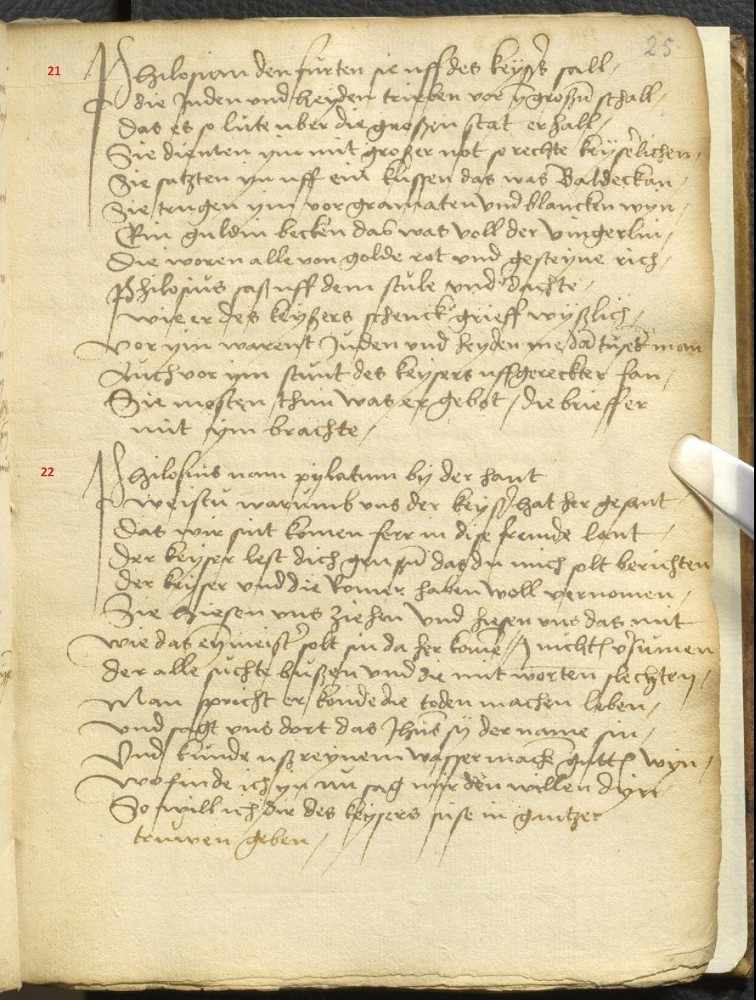 25
21
Philosium den furten sie uff des keysers sall /
die Juden und heyden trieben vor ym großen schall /
Das es so lute uber die großen stat erhall /
Sie dienten ym mit großer not so rechte keyserlichen /
Sie satzten yn uff ein kussen das was Baldeckan /
Sie trugen ym vor granaten und blancken wyn /
Ein guldin becken das was voll der vingerlin /
Die woren alle von golde rot und gesteyne rich /
Philosius saß uff dem stule und dachte /
wie er des keysers schenck grieff wyßlich /
Vor ym warent Juden und heyden me dan tusent man
Auch vor ym stunt des keysers uffgereckter fan /
Sie mosten thun was er gebot / die brieff er
mit ym brachte /
22
Philosius nam pylatum by der hant
weistu warumb uns der keyser hat her gesant
Das wir sint komen ferr in dise fremde lant
Der keyser lest dich grussen das du mich solt berichten
Der keyser und die Romer haben woll vernomen /
Sie hiesen uns ziehen und hiesen uns das nit
wie das eyn meister solt sin da her komen / nichtz versumen
Der alle suchte bußen und die mit worten slechten /
Man spricht er konde die toden machen leben /
Und sagt uns dort das Jhesus sy der name sin /
Und kunde uß reynem wasser machen gutten wyn /
wo finde ich yn nu sag mir den willen dyn
So will ich dir des keysers huse in gantzer
truwen geben /